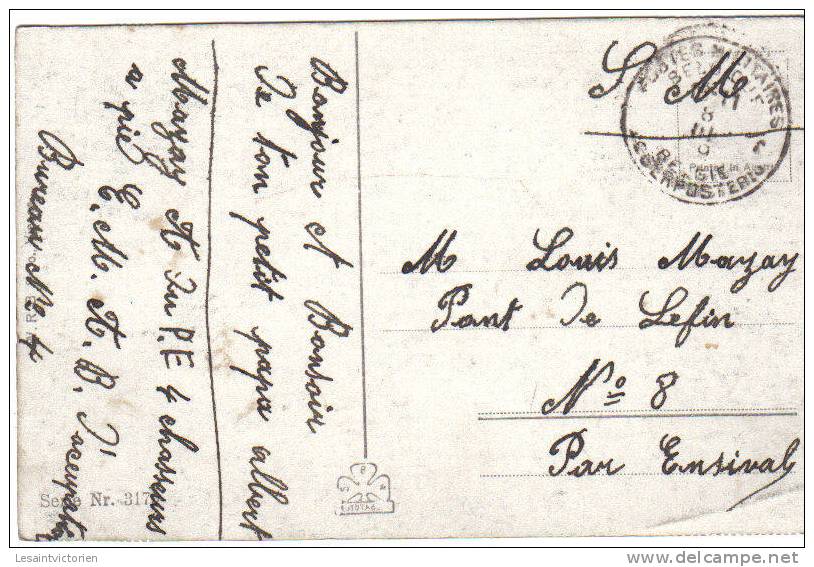 Bonjour et Bonsoir
De ton petit papa albert
Mazay A Du P.E 4 chasseurs
a pié E. M. A. B. D'ocupation
Bureau No 4
S M
POSTES MILITAIRES
BELGIE
LEGERPOSTERIJ
Printed in
M Louis Mazay
Pont De Lefin
No 8
Par Ensival
Serie Nr. 317
Lesaintvictorien
delcampe.net